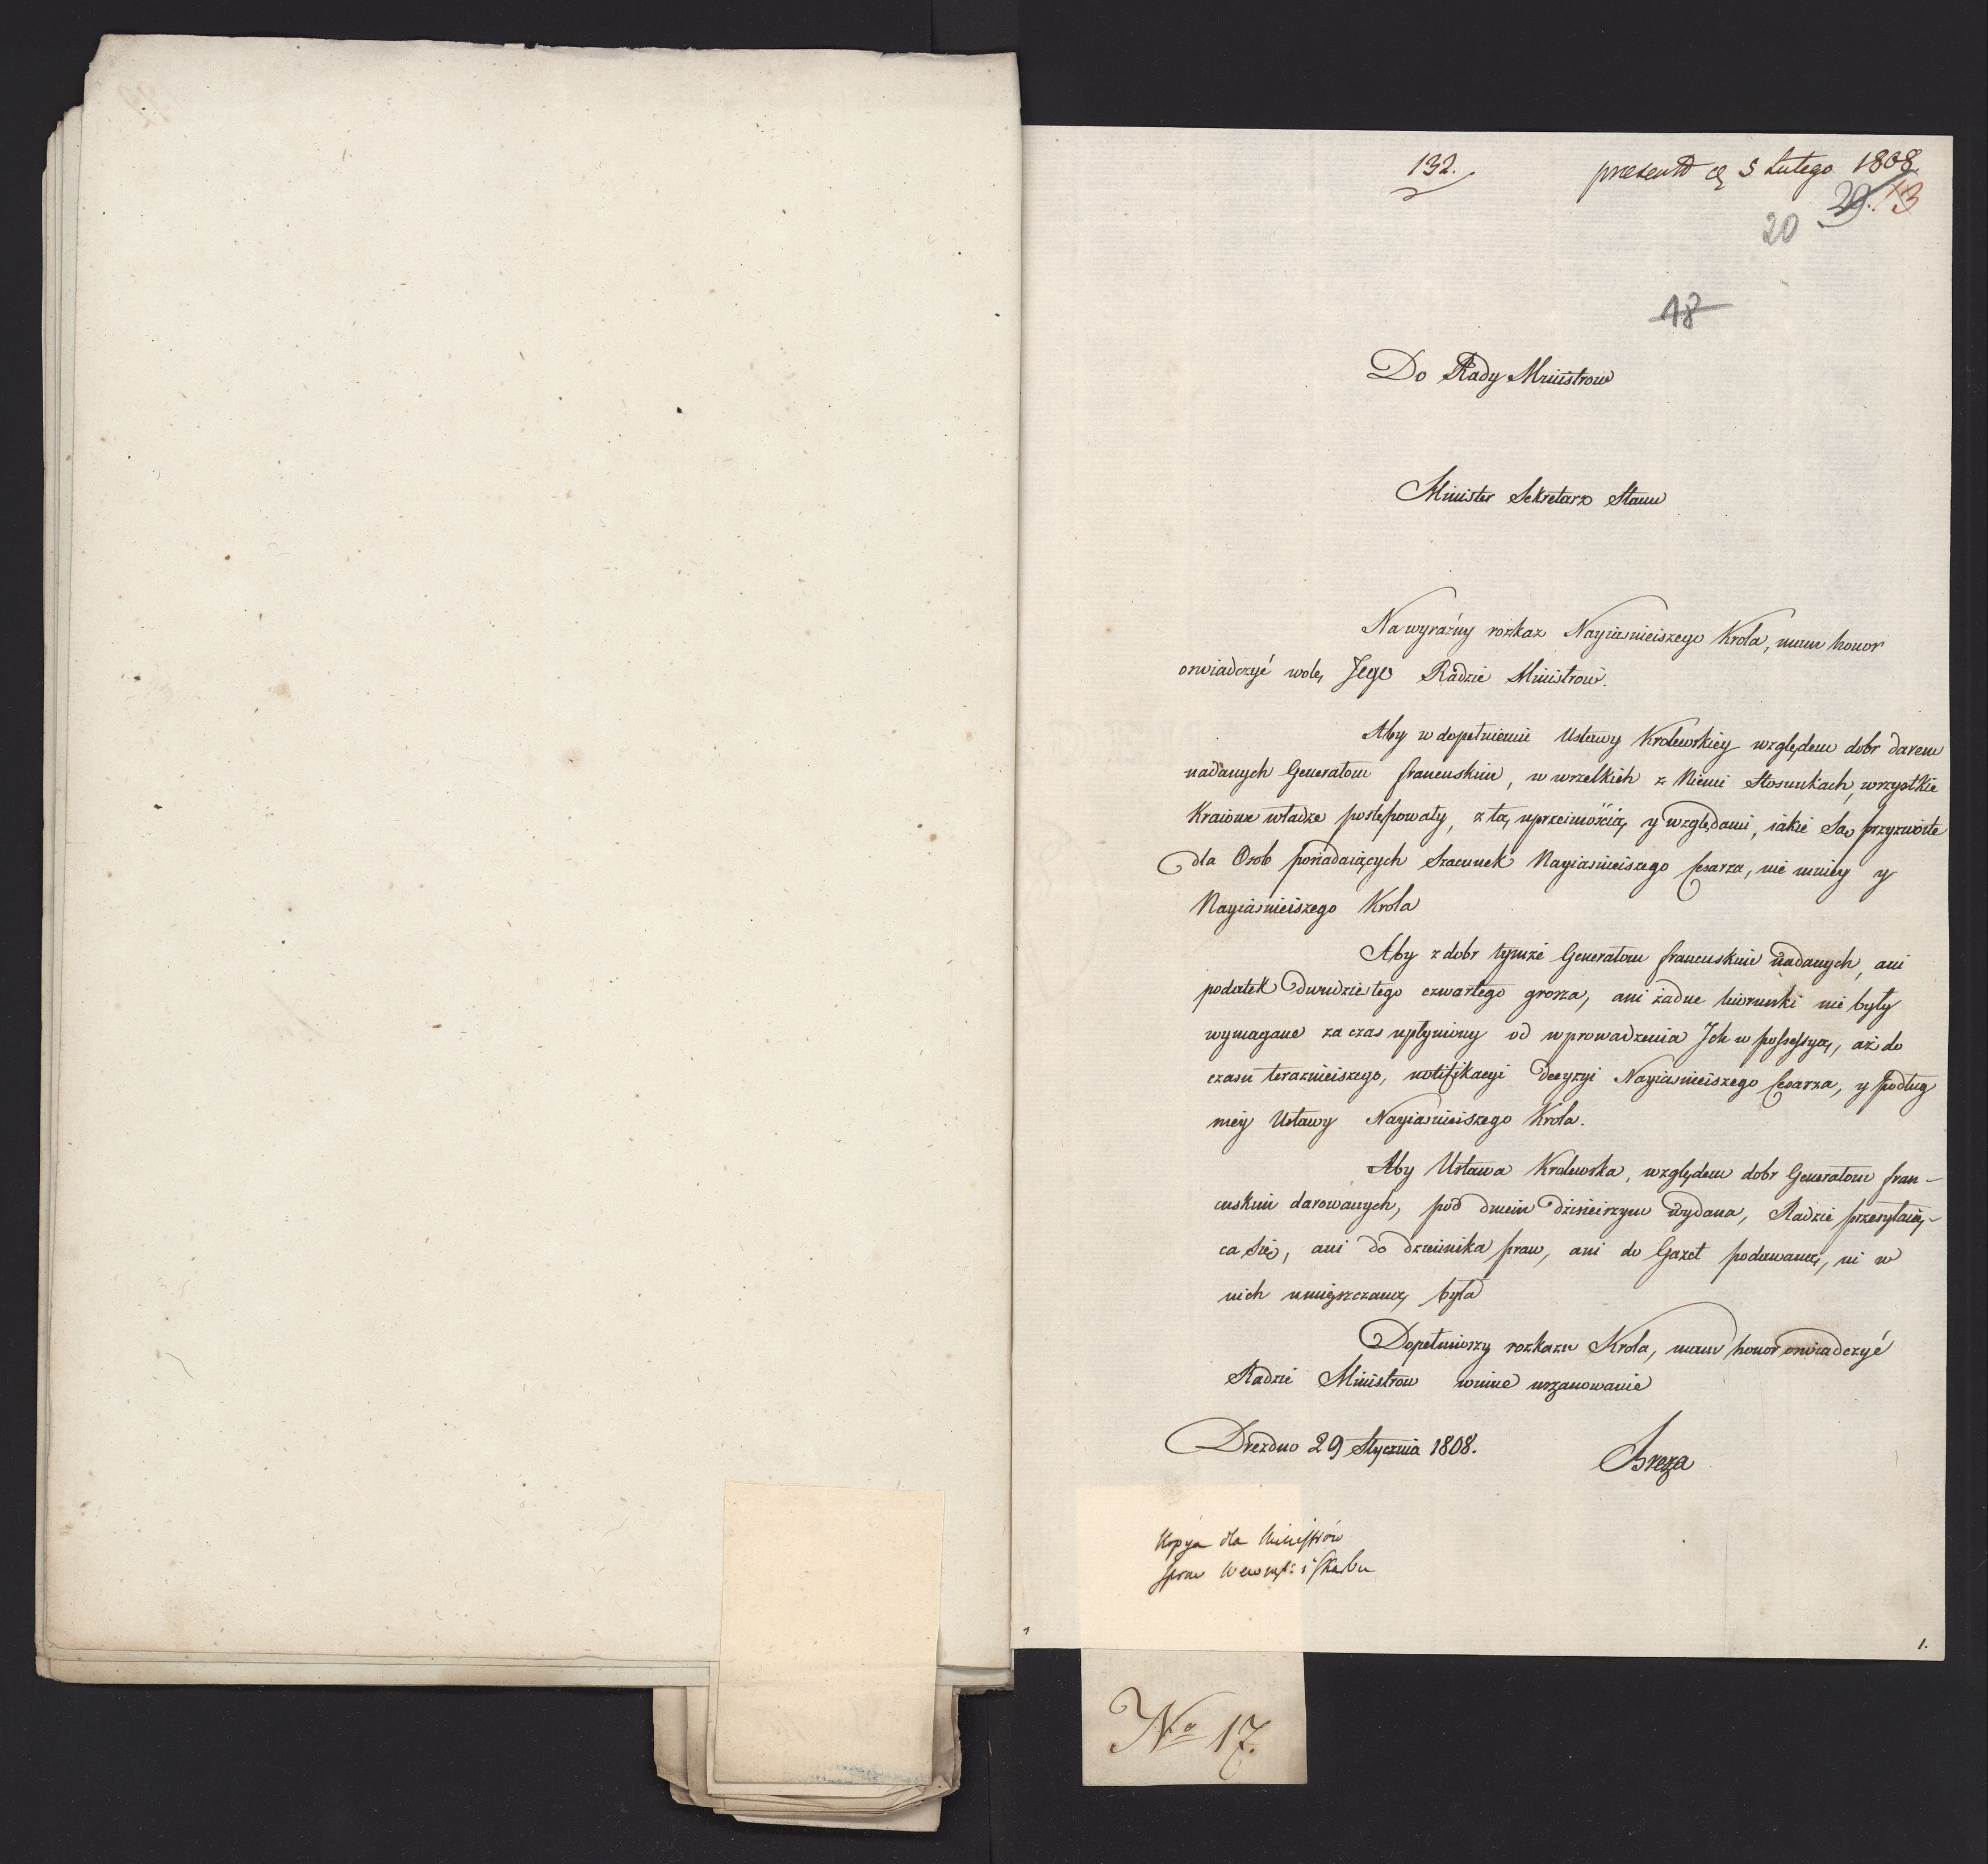 132.
present d. 5 Lutego 1808.
29. 13
20
18
Do Rady Ministrow
Minister Sekretarz Stanu
Na wyraźny rozkaz Nayiasnieiszego Krola, mam honor
oswiadczyć wolę Jego Radzie Ministrow.
Aby w dopełnieniu Ustawy Krolewskiey względem dobr darem
nadanych Generałom francuskim, w wszelkich z Niemi Stosunkach, wszystkie
Kraiowe władze postępowały, z tą uprzeimością y względami, iakie są przyzwoite
dla Osob posiadaiących Szacunek Nayiasnieiszego Cesarza, nie mniey y
Nayiasnieiszego Krola
Aby z dobr tymże Generałom francuskim nadanych, ani
podatek dwudziestego czwartego grosza, ani żadne liwerunki nie były
wymagane za czas upłyniony od wprowadzenia Ich w possessyą, aż do
czasu teraznieiszego, notifikacyi decyzyi Nayiasnieiszego Cesarza, y podług
niey Ustawy Nayiasnieiszego Krola.
Aby Ustawa Krolewska, względem dobr Generałom fran-
cuskim darowanych, pod dniem dzisieiszym wydana, Radzie przesyłaią-
ca się, ani do dziennika praw, ani do Gazet podawaną, ni w
nich umieszczaną była
Dopełniwszy rozkazu Krola, mam honor oswiadczyć
Radzie Ministrow winne uszanowanie
Drezdno 29 Stycznia 1808.
Breza
Kopja dla Ministrów
spraw Wewnęt: i Skarbu
1.
No 17.